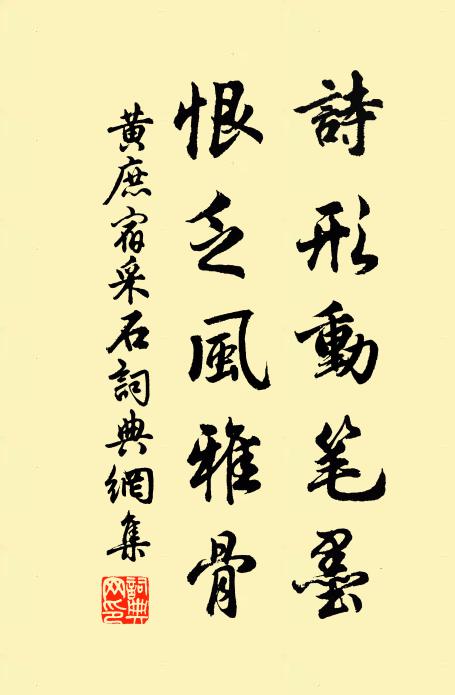 詩形動笔墨
恨乏風雅骨
黃庶宿采石詞典網集